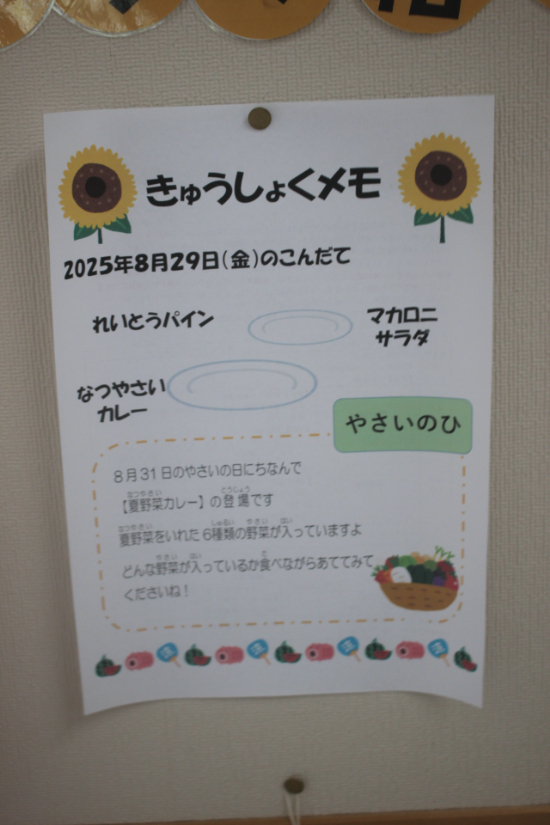 きゅうしょくメモ
2025年8月29日(金)のこんだて
れいとうパイン
マカロニ
サラダ
なつやさい
カレー
やさいのひ
8月31日のやさいの日にちなんで
【夏野菜カレー】の登場です
夏野菜をいれた6種類の野菜が入っていますよ
どんな野菜が入っているか食べながらあててみて
くださいね!